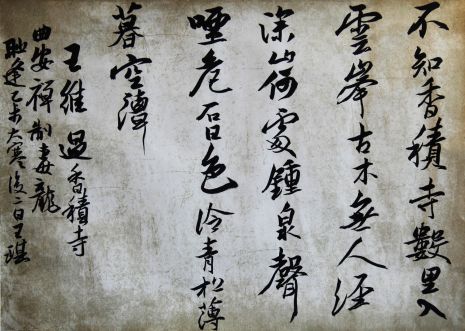 不知香積寺數里入
雲峯古木無人經
深山何處鍾泉聲
咽危石日色冷青松薄
暮空潭
王維過香積寺
曲安禪制毒龍
逢乙未大寒後二日王琪